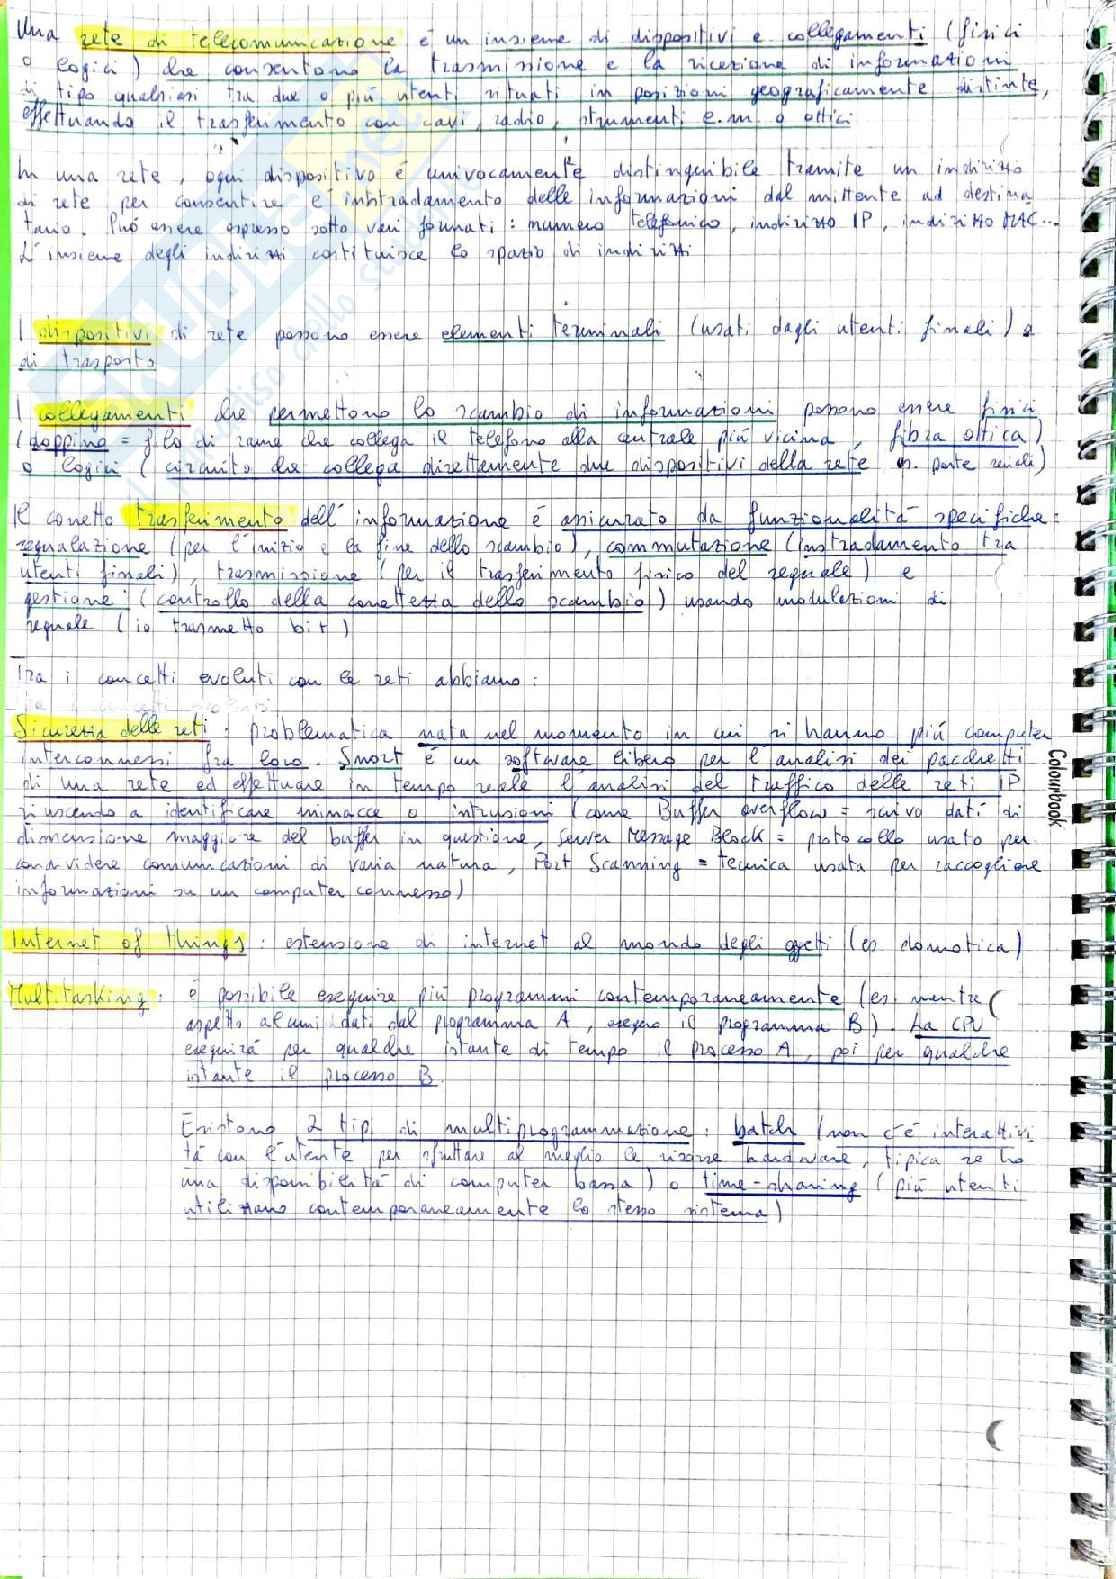 Una rete di telecomunicazione è un insieme di dispositivi e collegamenti (fisici
o logici) che consentono la trasmissione e la ricezione di informazioni
di tipo qualsiasi tra due o più utenti situati in posizioni geograficamente distinte,
effettuando il trasferimento con cavi, radio, strumenti e.m. o ottici
In una rete, ogni dispositivo è univocamente distinguibile tramite un indirizzo
di rete per consentire l'instradamento delle informazioni dal mittente ad destina
tario. Può essere espresso sotto vari formati: numero telefonico, indirizzo IP, indirizzo MAC...
L'insieme degli indirizzi costituisce lo spazio di indirizzi
I dispositivi di rete possono essere elementi terminali (usati dagli utenti finali) o
di trasporto
I collegamenti che permettono lo scambio di informazioni possono essere fisici
(doppino = filo di rame che collega il telefono alla centrale più vicina, fibra ottica)
o logici (circuito che collega direttamente due dispositivi della rete es. porte seriali)
Il concetto trasferimento dell'informazione è assicurato da funzionalità specifiche:
segnalazione (per l'inizio e la fine dello scambio), commutazione (instradamento tra
utenti finali), trasmissione (per il trasferimento fisico del segnale) e
gestione (controllo della correttezza dello scambio) usando modulazioni di
segnale (io trasmetto bit)
Tra i concetti evoluti con le reti abbiamo:
Sicurezza delle reti: problematica nata nel momento in cui si hanno più computer
interconnessi fra loro. Snort è un software libero per l'analisi dei pacchetti
di una rete ed effettuare in tempo reale l'analisi del traffico delle reti IP
riuscendo a identificare minacce o intrusioni (come Buffer overflow = scrivo dati di
dimensione maggiore del buffer in questione, Server Message Block = protocollo usato per
condividere comunicazioni di varia natura, Port Scanning = tecnica usata per raccogliere
informazioni su un computer connesso)
Internet of things: estensione di internet al mondo degli oggetti (es. domotica)
Multitasking: è possibile eseguire più programmi contemporaneamente (es. mentre
aspetto alcuni dati dal programma A, eseguo il programma B). La CPU
eseguirà per qualche istante di tempo il processo A, poi per qualche
istante il processo B.
Esistono 2 tipi di multiprogrammazione: batch (non c'è interattivi
tà con l'utente per sfruttare al meglio le risorse hardware, tipica se ho
una disponibilità di computer bassa) o time-sharing (più utenti
utilizzano contemporaneamente lo stesso sistema)
Colourbook